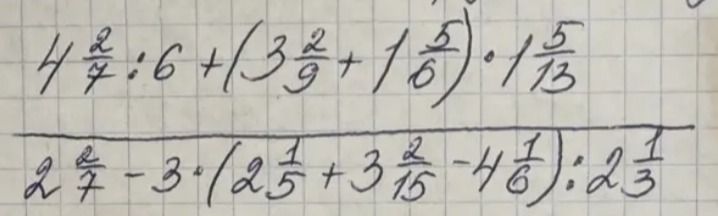 4 2/7 : 6 + (3 2/9 + 1 5/6) · 1 5/13
2 2/7 - 3 · (2 1/5 + 3 2/15 - 4 1/6) : 2 1/3